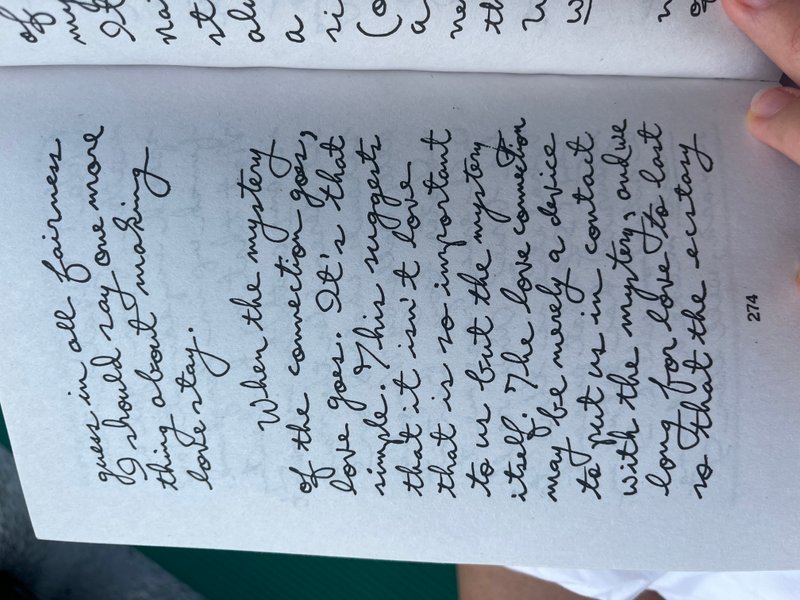 guess in all fairness
I should say one more
thing about making
love stay.
When the mystery
of the connection goes,
love goes. It's that
simple. This suggests
that it isn't love
that is so important
to us but the mystery
itself. The love connection
may be merely a device
to put us in contact
with the mystery, and we
long for love to last
so that the ecstasy
274